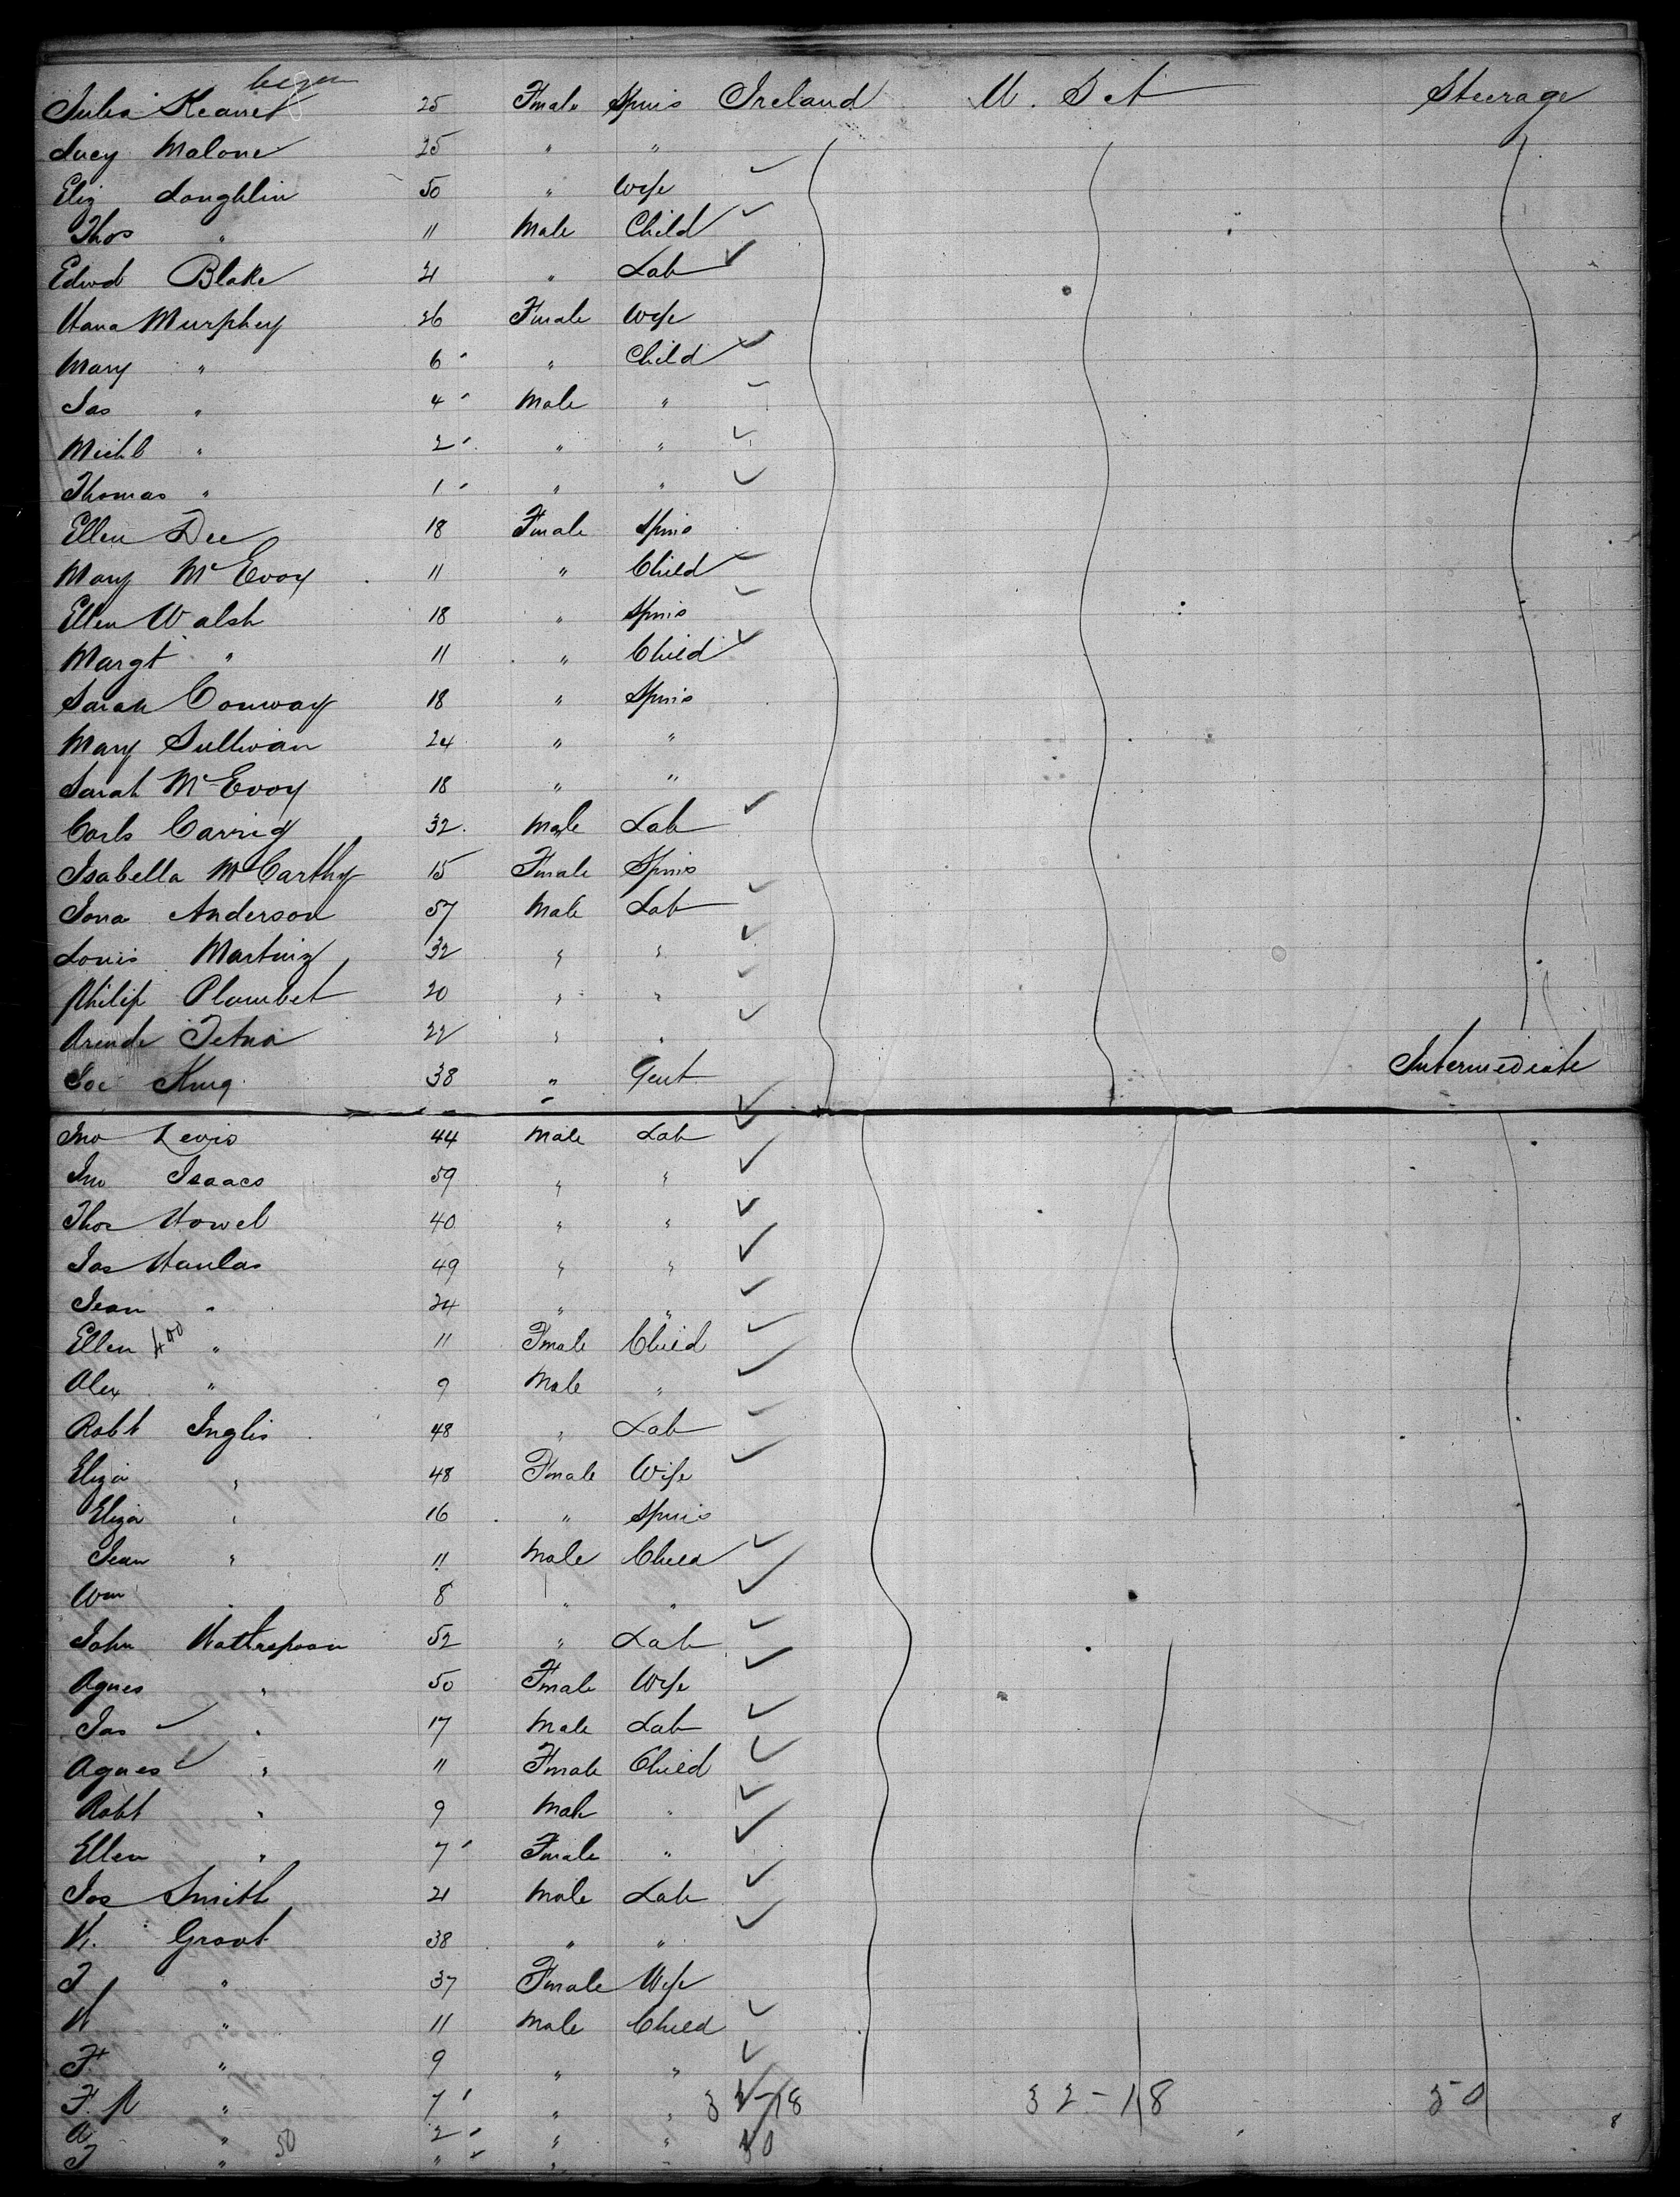 Julia Keane 25 Fmale Spins Ireland U. S. A Steerage
Lucy Malone 25 " "
Eliz Loughlin 50 " Wife
Thos " 11 Male Child
Edwd Blake 21 " Lab
Hana Murphey 26 Fmale Wife
Mary " 6 " Child
Jas " 4 Male "
Michl " 2 " "
Thomas " 1 " "
Ellen Dee 18 Fmale Spins
Mary McEvoy 11 " Child
Ellen Walsh 18 " Spins
Margt " 11 " Child
Sarah Conway 18 " Spins
Mary Sullivan 24 " "
Sarah McEvoy 18 " "
Carls Carrig 32 Male Lab
Isabella McCarthy 15 Fmale Spins
Jona Anderson 57 Male Lab
Louis Martinz 32 " "
Philip Plombet 20 " "
Arende Tetna 22 " "
Joe King 38 " Gent Intermediate
Jno Levis 44 Male Lab
Jno Isaacs 59 " "
Thos Howel 40 " "
Jas Haulas 49 " "
Jean " 24 " "
Ellen 400 " 11 Fmale Child
Alex " 9 Male "
Robt Inglis 48 " Lab
Eliza " 48 Fmale Wife
Eliza " 16 " Spins
Jean " 11 Male Child
Wm " 8 " "
John Wattrspoon 52 " Lab
Agnes " 50 Fmale Wife
Jas " 17 Male Lab
Agnes " 11 Fmale Child
Robt " 9 Male "
Ellen " 7 Fmale "
Jos Smith 21 Male Lab
W. Grant 38 " "
J " 37 Fmale Wife
W " 11 Male Child
F. " 9 " "
F. A " 7 " " 32-18 32-18 50
A " 2 " "
J " 50 " " " 50